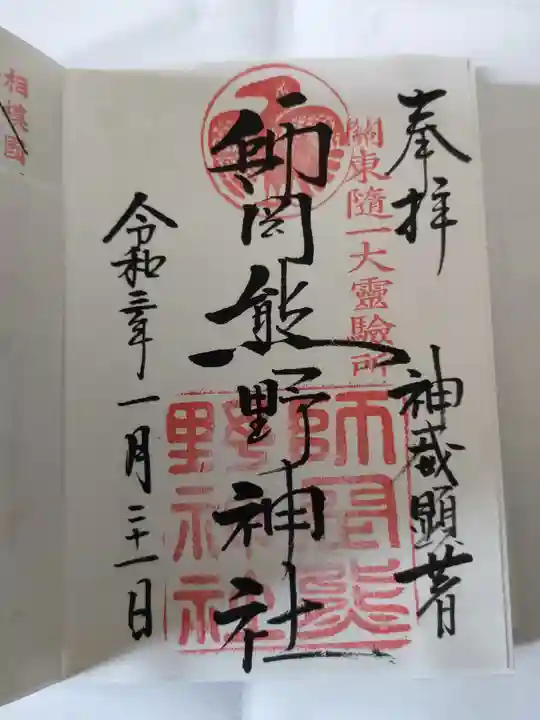 奉拝
神威顕著
關東隨一大靈驗所
師岡熊野神社
師岡熊野神社
令和三年一月二十一日
相模國